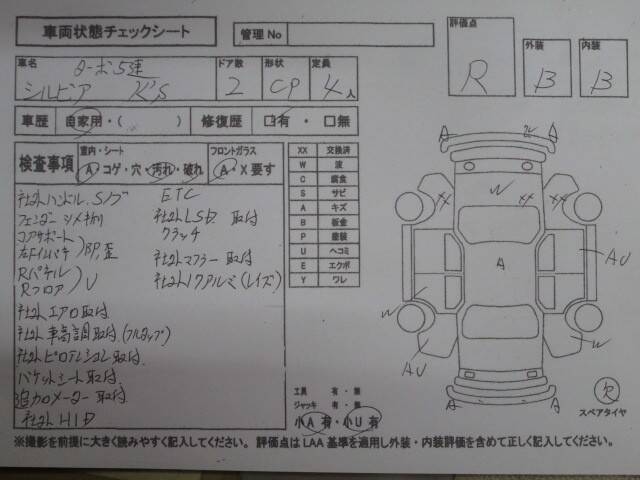 車両状態チェックシート
管理No
評価点 R
外装 B
内装 B
車名 ターボ5速
シルビア K's
ドア数 2
形状 CP
定員 4人
車歴 自家用・( )
修復歴 ☑有・□無
検査事項
室内・シート
A コゲ・穴・汚れ・破れ
フロントガラス
A・X要す
XX 交換済
W 波
C 腐食
S サビ
A キズ
B 板金
P 塗装
U ヘコミ
E エクボ
Y ワレ
社外ハンドル、Sノブ
フェンダー ツメ切り
コアサポート
左Fインパネ )BP,歪
Rパネル
Rフロア )U
社外エアロ取付
社外車高調取付(フルタップ)
社外ピロテンション取付
バケットシート取付
追加メーター取付
社外HID
ETC
社外LSD 取付
クラッチ
社外マフラー取付
社外17アルミ(レイズ)
A
A
W
XX
XX
A
AU
W
W
AU
A
A
工具 有・無
ジャッキ 有・無
小A有・小U有
欠
スペアタイヤ
※撮影を前提に大きく読みやすく記入してください。 評価点はLAA基準を適用し外装・内装評価を含めて正しく記入してください。